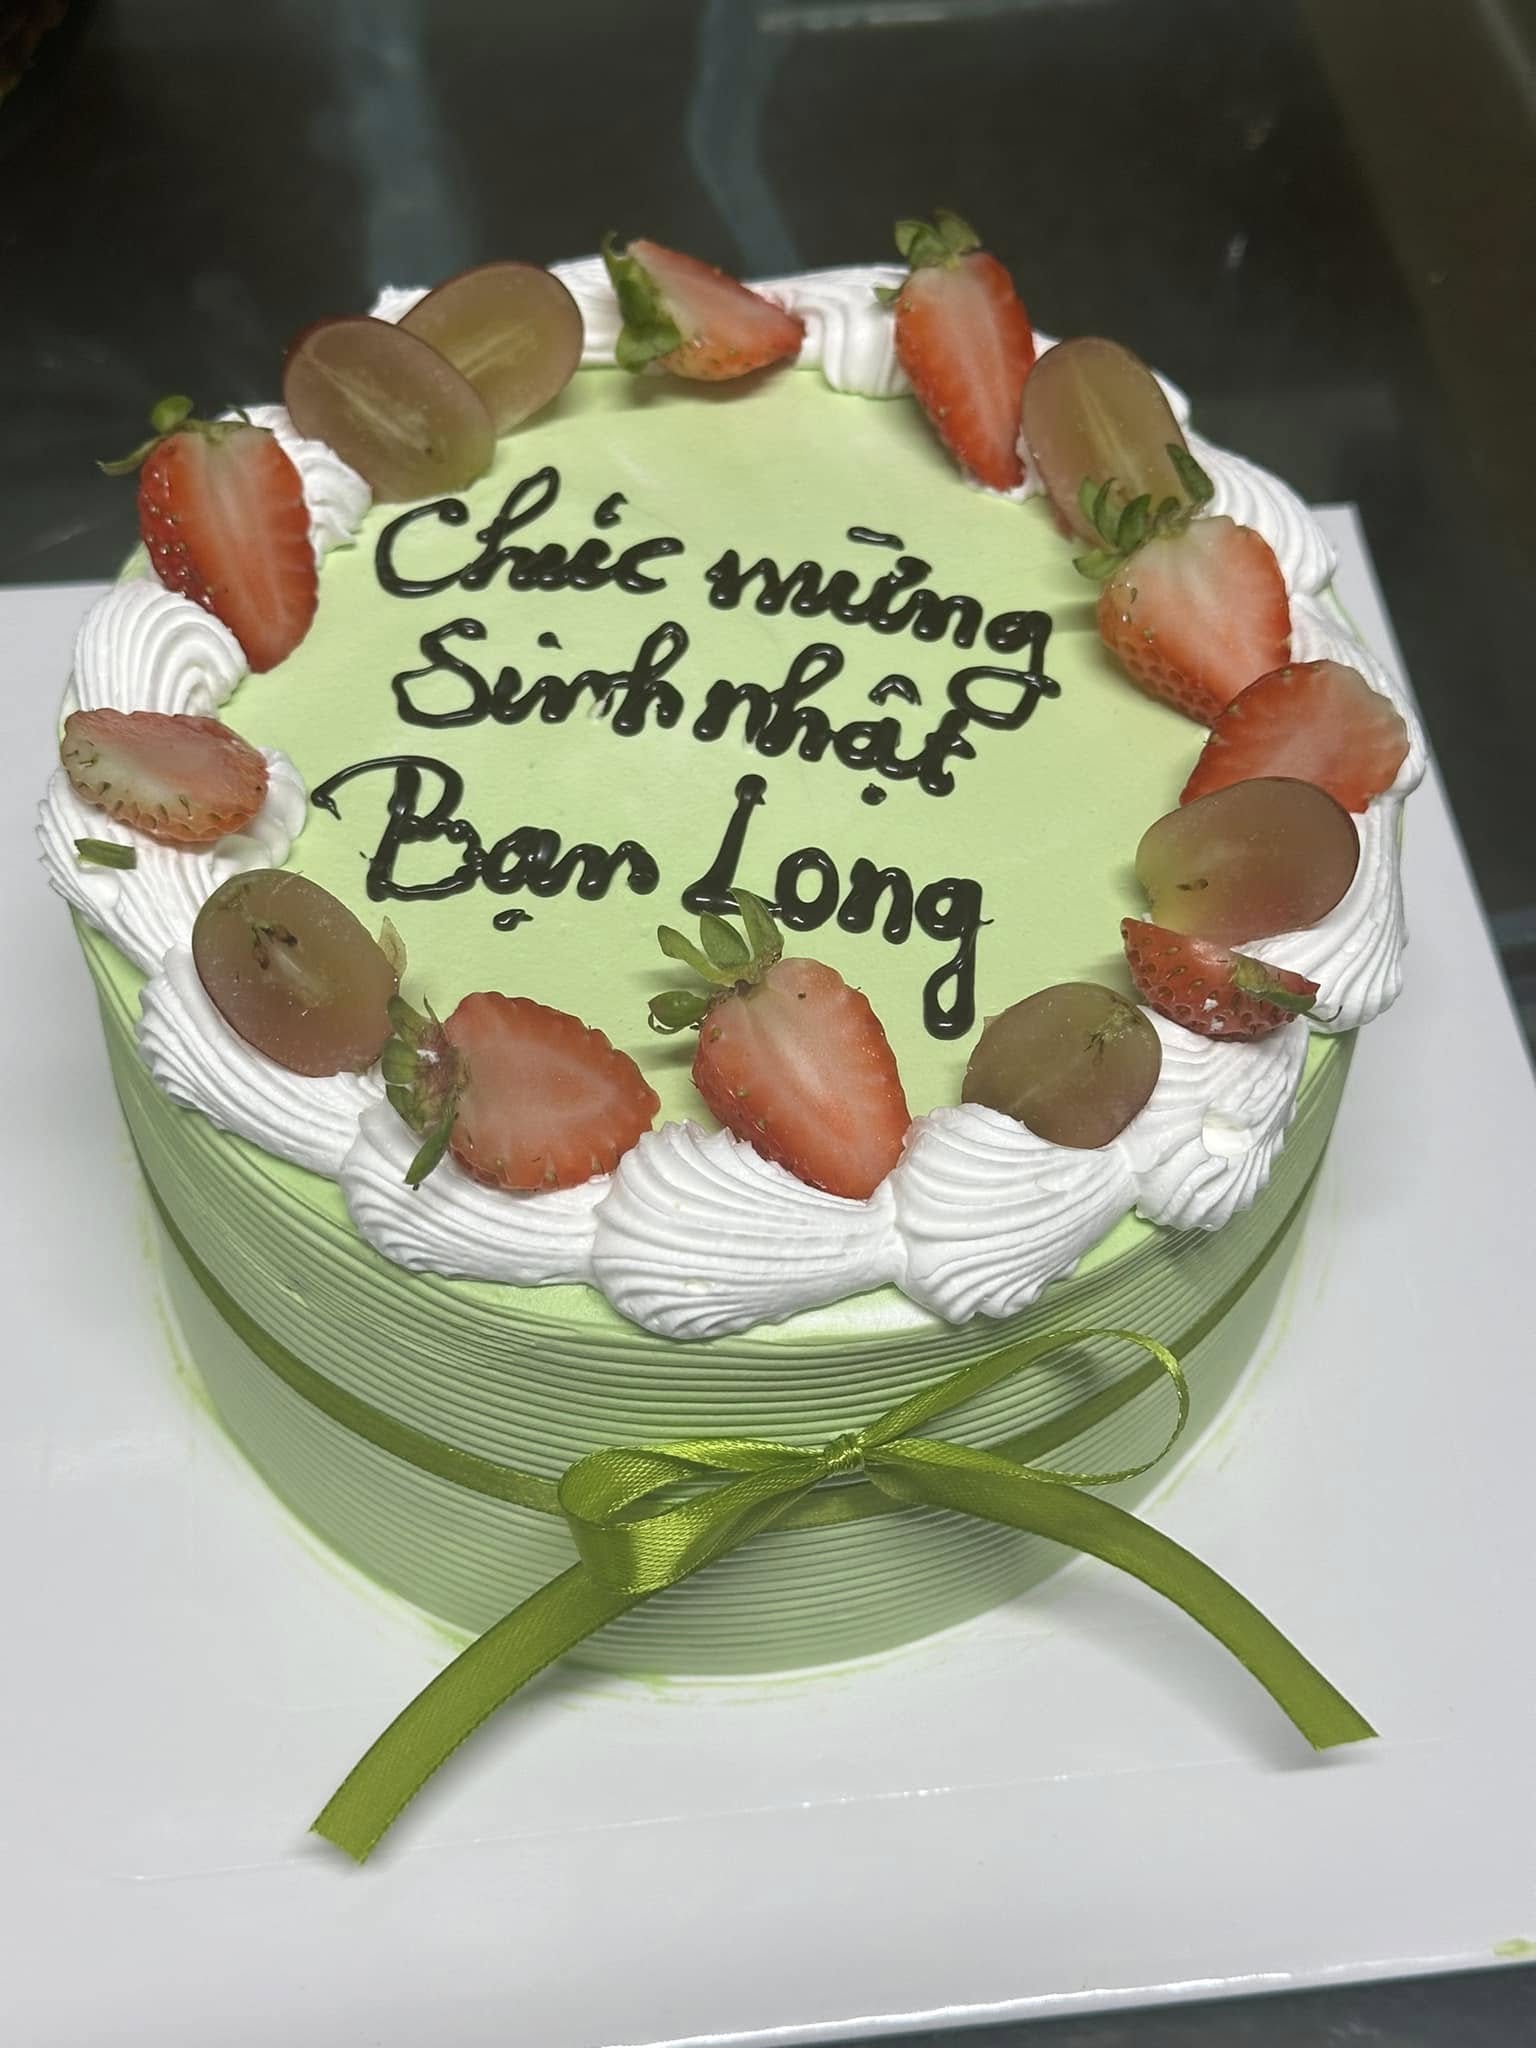 Chúc mừng
Sinh nhật
Bạn Long